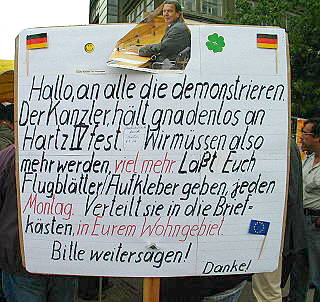 Hallo, an alle die demonstrieren.
Der Kanzler, hält gnadenlos an
Hartz IV fest. Wir müssen also
mehr werden, viel mehr Laßt Euch
Flugblätter/Aufkleber geben, jeden
Montag. Verteilt sie in die Brief-
kästen, in Eurem Wohngebiet.
Bitte weitersagen!
Danke!